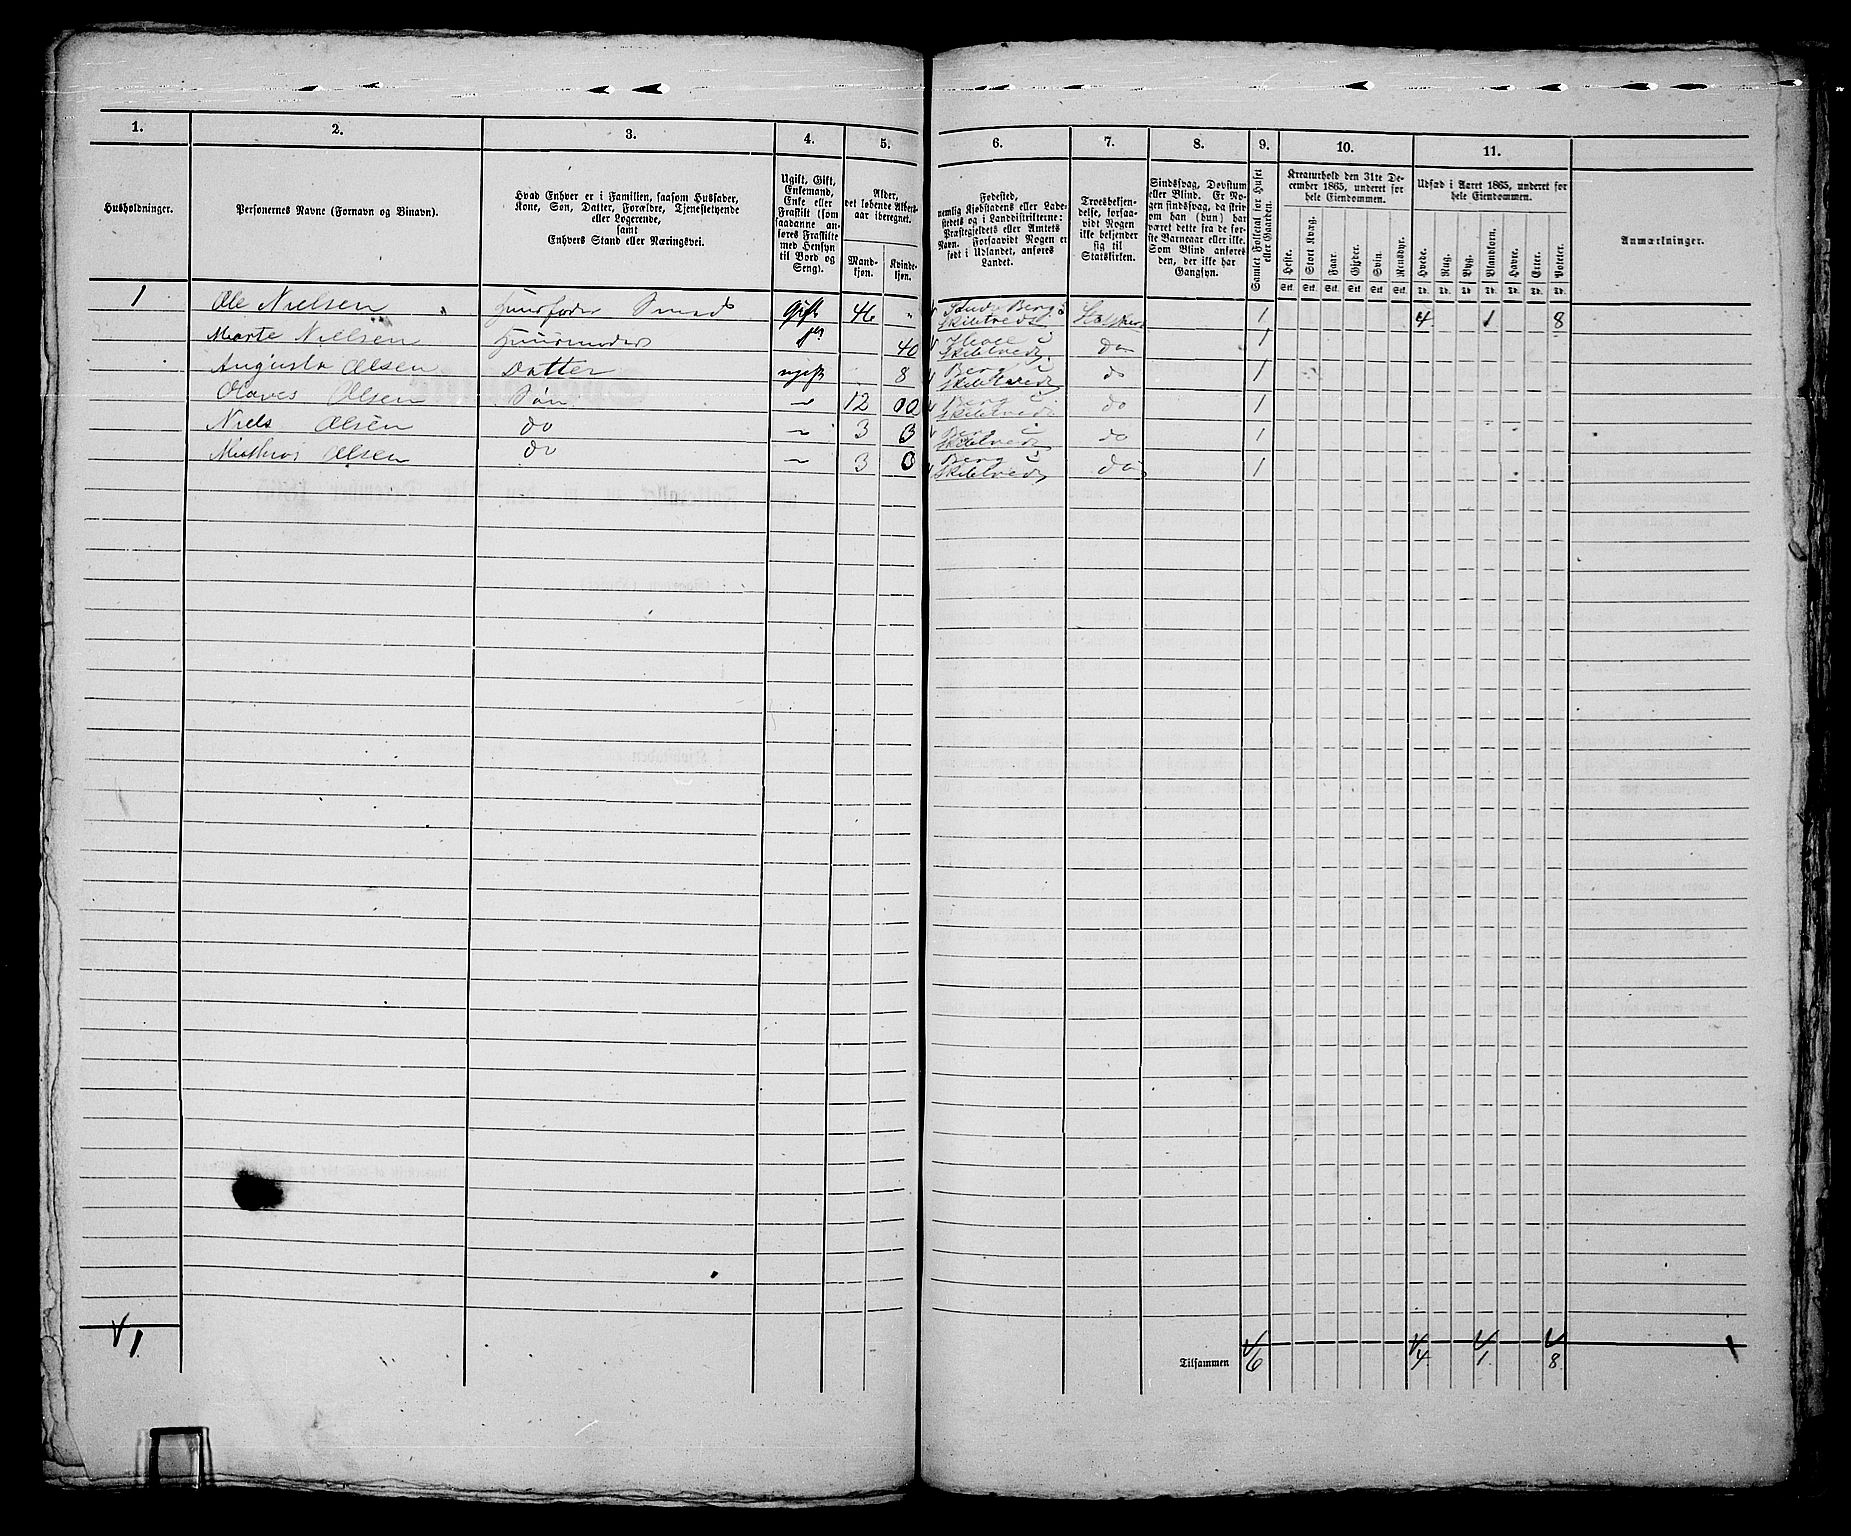 1. 2. 3. 4. 5. 6. 7. 8. 9. 10. 11.
Husholdninger.
Personernes Navne (Fornavn og Binavn).
Hvad Enhver er i Familien, saasom Husfader,
Kone, Søn, Datter, Forældre, Tjenestetyende
eller Logerende,
samt
Enhvers Stand eller Næringsvei.
Ugift, Gift,
Enkemand,
Enke eller
Fraskilt (som
saadanne an-
føres Fraskilte
med Hensyn
til Bord og
Seng).
Alder,
det løbende Alders-
aar iberegnet.
Mand-
kjøn.
Kvinde-
kjøn.
Fødested,
nemlig Kjøbstadens eller Lade-
stedets og i Landdistrikterne:
Præstegjeldets eller Amtets
Navn. Forsaavidt Nogen er
født i Udlandet, anføres
Landet.
Troesbekjen-
delse, forsaa-
vidt Nogen
ikke bekjender
sig til
Statskirken.
Sindssvag, Døvstum
eller Blind. Er No-
gen sindssvag, da skriv
om han (hun) har
været dette fra de før-
ste Barneaar eller ikke.
Som Blind anføres
den, der ikke har
Gangsyn.
Samlet Folketal for Huset
eller Gaarden.
Kreaturhold den 31te De-
cember 1865, underet for
hele Eiendommen.
Heste. Stort Kvæg. Faar. Gjeder. Svin. Rensdyr.
Stk. Stk. Stk. Stk. Stk. Stk.
Udsæd i Aaret 1865, underet for
hele Eiendommen.
Hvede. Rug. Byg. Blandkorn. Havre. Erter. Poteter.
Anmærkninger.
1 Ole Nielsen Huusfader Smed Gift 46 " Berg i Skibtveds 1 4 1 8
Marte Nielsen Huusmoder 40 Skibtvedt do 1
Augusta Olsen Datter ugift 8 Berg i Skibtvedt do 1
Olaves Olsen Søn 12 Berg i Skibtvedt do 1
Niels Olsen do 3 Berg i Skibtvedt do 1
Olsen do 3 Berg i Skibtvedt do 1
1 Tilsammen 6 4 1 8